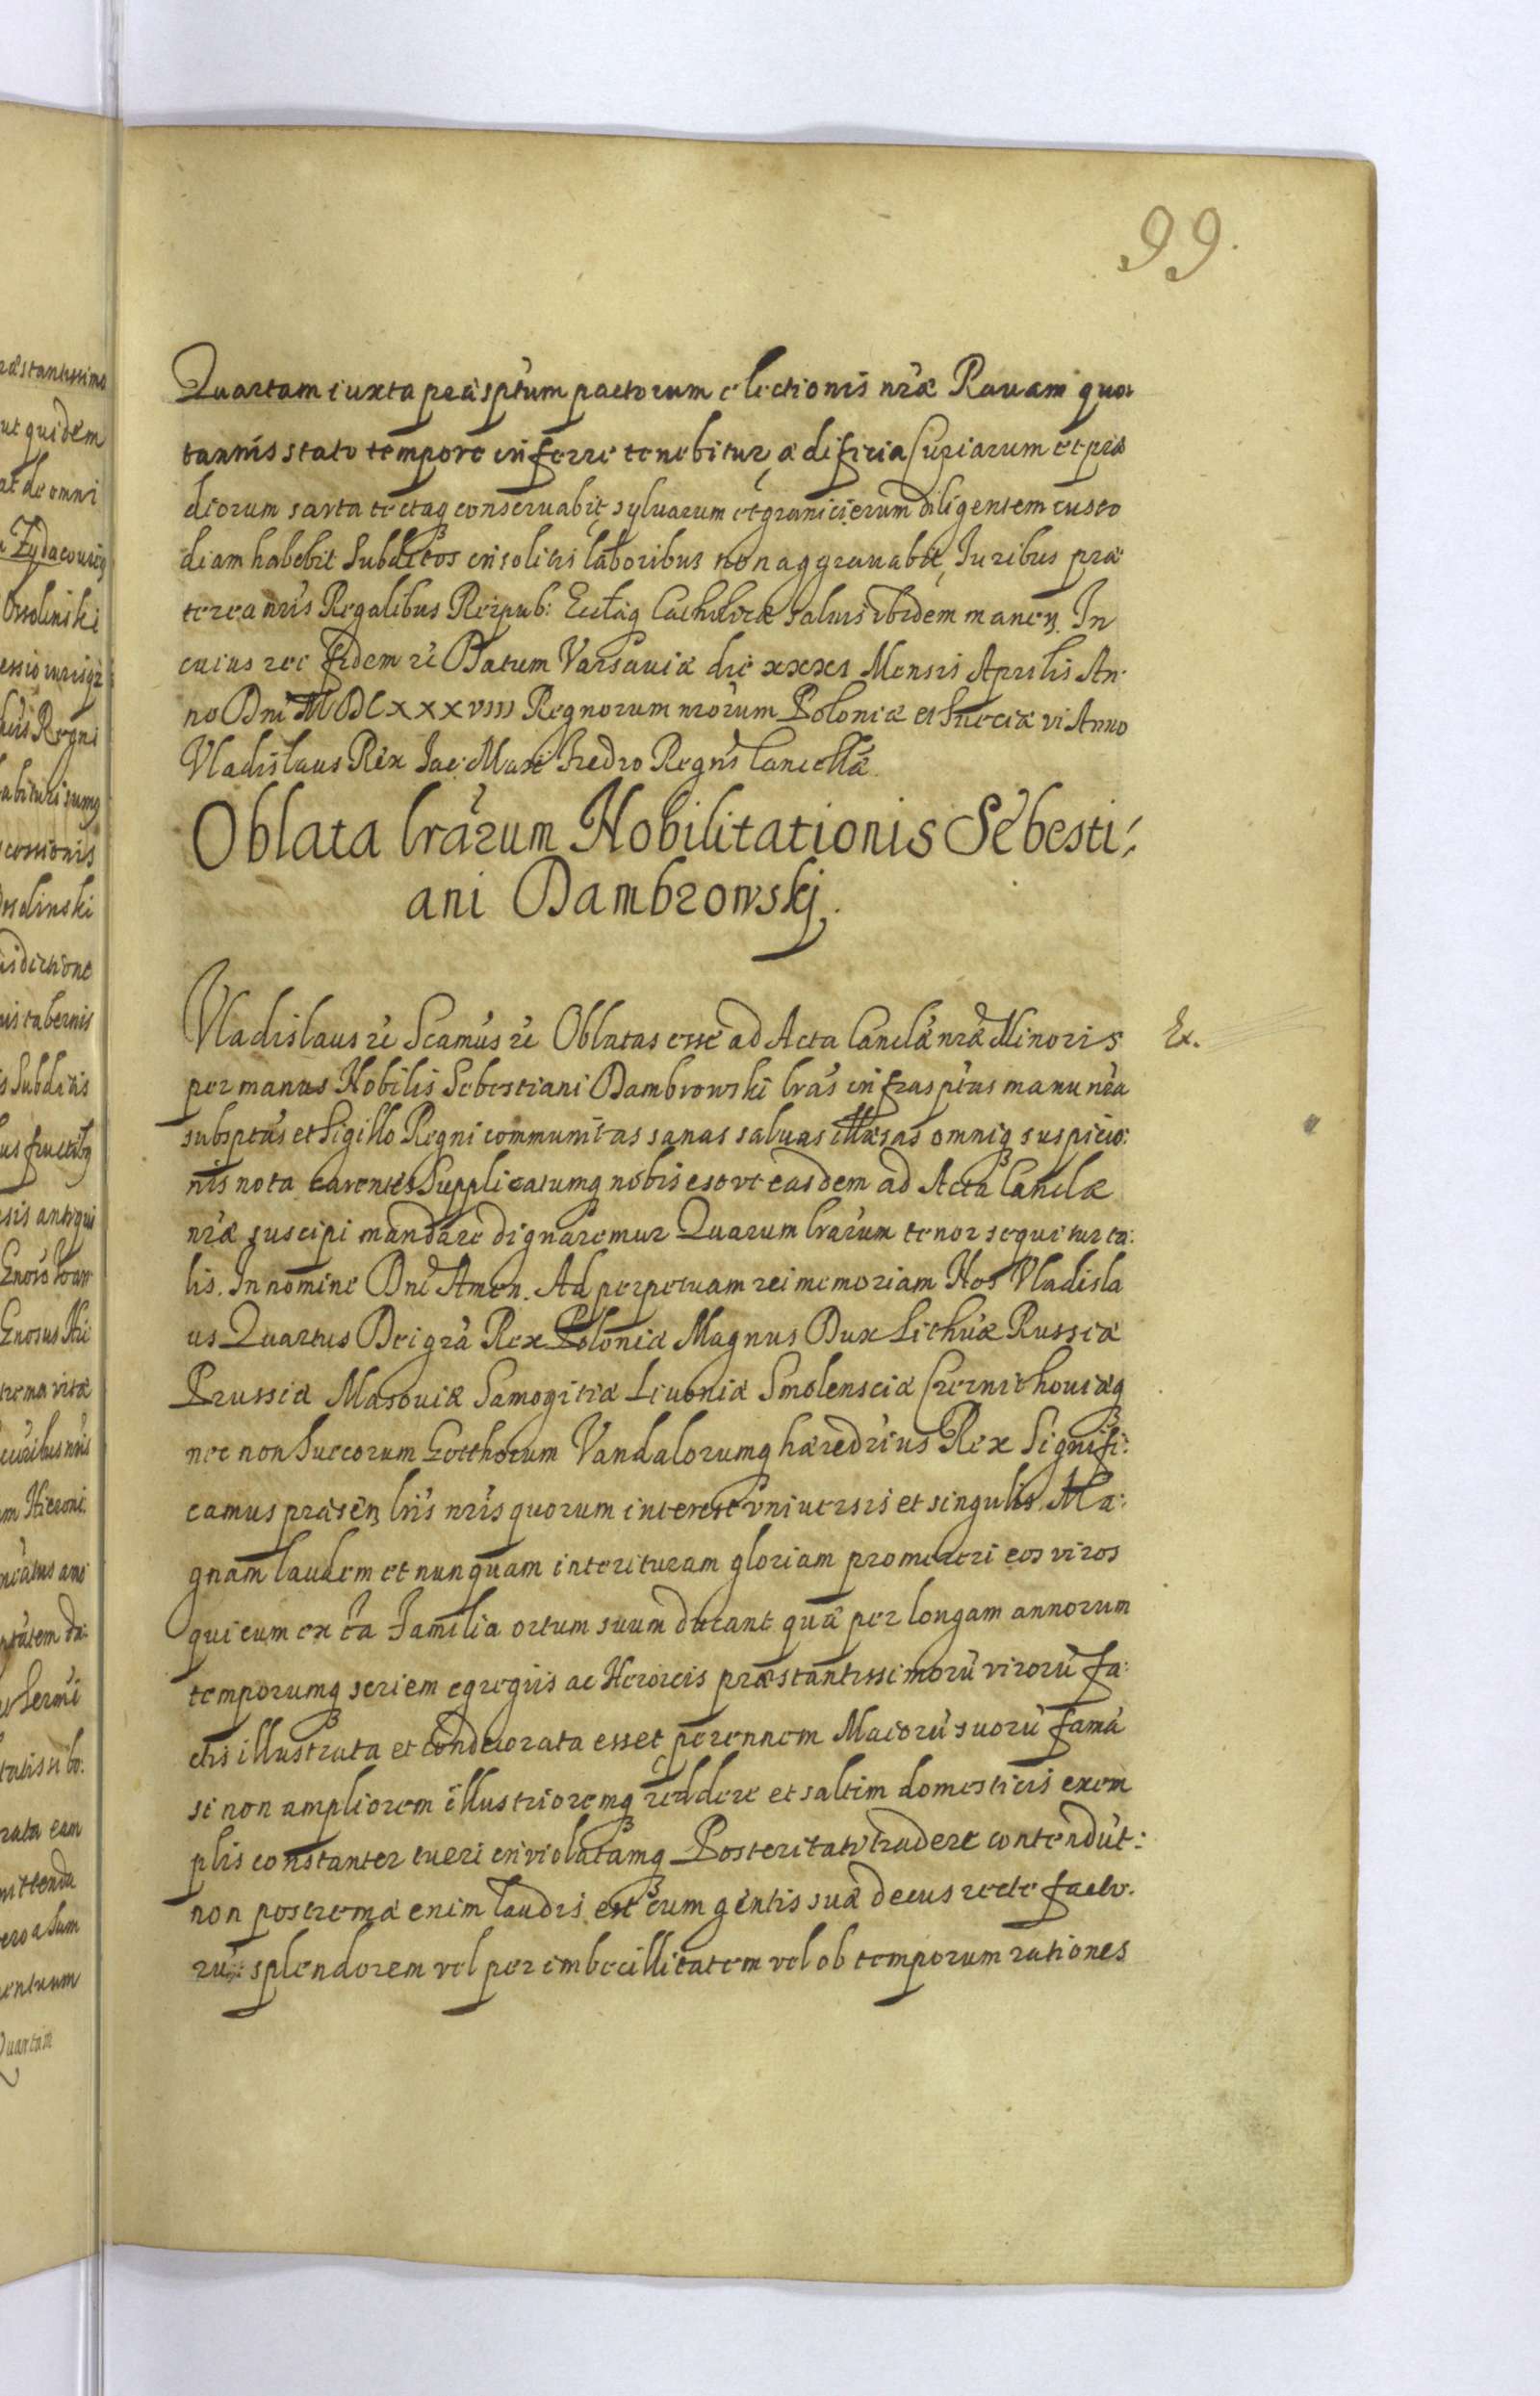 99.
Quartam iuxta præsptum pactorum electionis nræ Rauam quo
tannis stato tempore inferre tenebitur, ædificia Curiarum et præ
diorum sarta tectaq conseruabit, syluarum et granicierum diligentem custo
diam habebit Subditos insolitis laboribus non aggrauabit, Iuribus præ
terea nris Regalibus Reipub: Ecclæq Catholicæ saluis ibidem manen. In
cuius rei fidem &c Datum Varsauiæ die xxxi Mensis Aprilis An-
no Dni MDCxxxviii Regnorum nrorum Poloniæ et Sueciæ vi Anno
Vladislaus Rex Jac: Max: Fredro Regns Cancellæ
Oblata lrarum Nobilitationis Sebesti:
ani Dambrowskj.
Vladislaus &c Scamus &c Oblatas esse ad Acta Canclæ nræ Minoris
Ex.
per manus Nobilis Sebestiani Dambrowski lras infrasptas manu nra
subsptas et Sigillo Regni communitas sanas saluas illæsas omniq suspicio:
nis nota carentes Supplicatumq nobis est vt easdem ad Acta Canclæ
nræ suscipi mandare dignaremur Quarum lrarum tenor sequitur ta:
lis. In nomine Dni Amen. Ad perpetuam rei memoriam Nos Vladisla
us Quartus Dei gra Rex Poloniæ Magnus Dux Lithuæ Russiæ
Prussiæ Masouiæ Samogitiæ Liuoniæ Smolensciæ Czernichouiæq
nec non Suecorum Gotthorum Vandalorumq hæredrius Rex Signifi:
camus præsen lris nris quorum interest vniuersis et singulis. Ma:
gnam laudem et nunquam interituram gloriam promereri eos viros
qui cum ex ea Familia ortum suum ducant quæ per longam annorum
temporumq seriem egregiis ac Heroicis præstantissimorū virorū fa:
ctis illustrata et condecorata esset perennem Maiorū suorū famā
si non ampliorem illustrioremq reddere et saltim domesticis exem
plis constanter tueri inviolatamq Posteritati tradere contendūt:
non postremæ enim laudis est cum gentis suæ decus recte facto:
rū splendorem vel per imbecillitatem vel ob temporum rationes